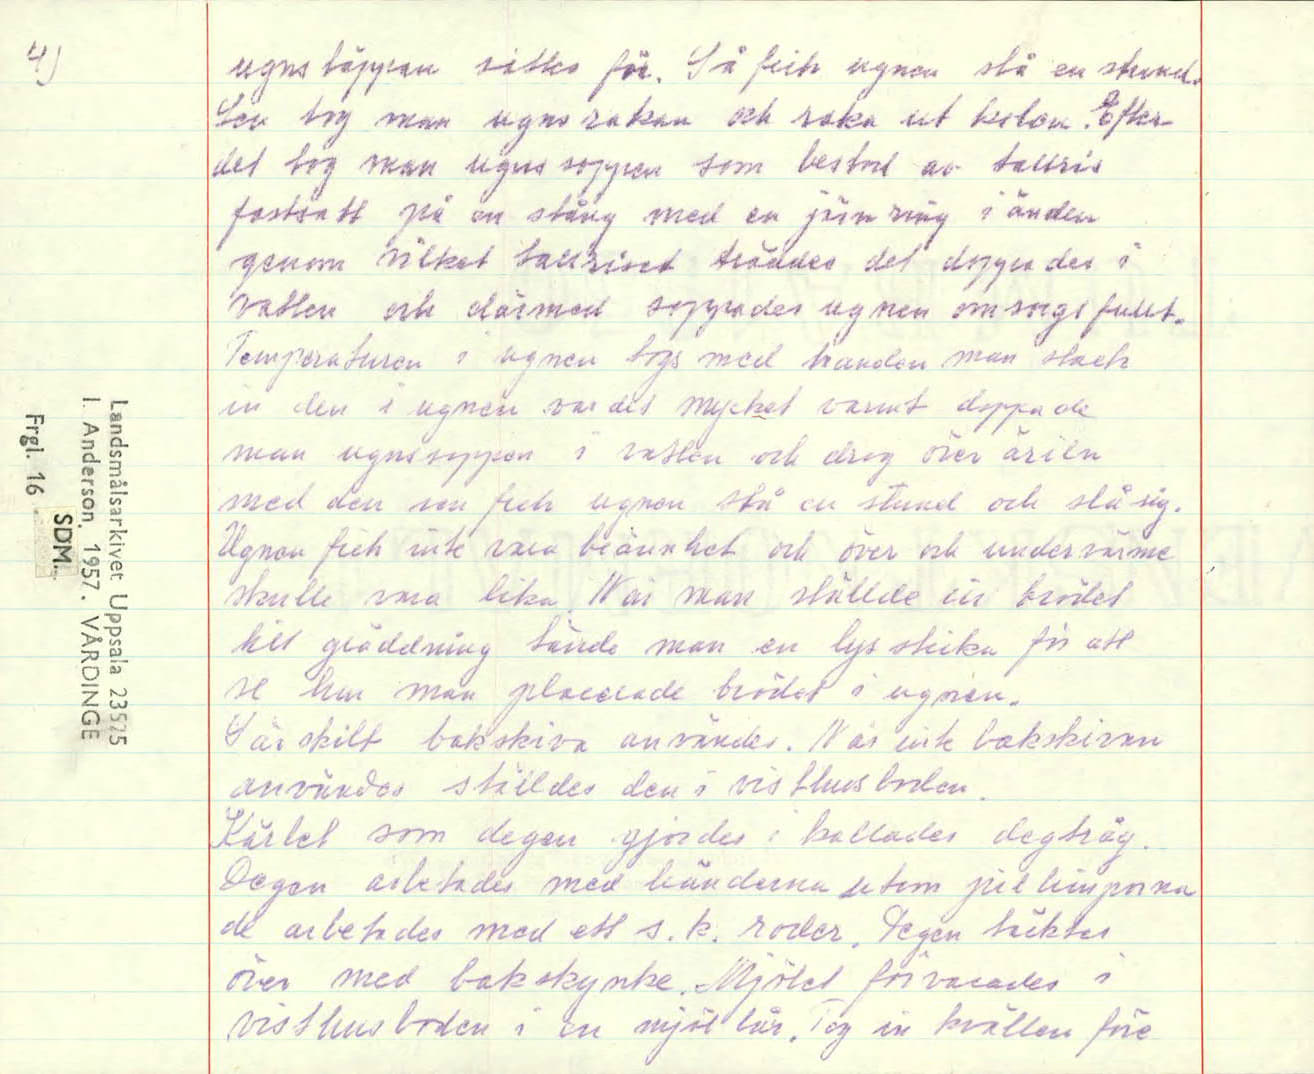 4)
ugnstäppan sattes för. Så fick ugnen stå en stund.
Sen tog man ugnsrakan och raka ut kolen. Efter
det tog man ugnssoppen som bestod av tallris
fastsatt på en stång med en järnring i änden
genom vilket tallriset träddes det doppades i
vatten och därmed sopades ugnen omsorgsfullt.
Temperaturen i ugnen togs med handen man stack
in den i ugnen var det mycket varmt doppade
man ugnssoppen i vatten och drog över äriln
med den sen fick ugnen stå en stund och slå sig.
Ugnen fick inte vara brännhet och över och undervärme
skulle vara lika. När man ställde in brödet
till gräddning tände man en lysstika för att
se hur man placerade brödet i ugnen.
Särskilt bakskiva användes. När inte bakskivan
användes ställdes den i visthusboden.
Kärlet som degen gjordes i kallades degtråg.
Degen arbetades med händerna utom pillimporna
de arbetades med ett s.k. roder. Degen täktes
över med bakskynke. Mjölet förvarades i
visthusboden i en mjöllår. Tog in kvällen före
Landsmålsarkivet Uppsala 23575
I. Anderson. 1957. VÅRDINGE
SDM.
Frgl. 16